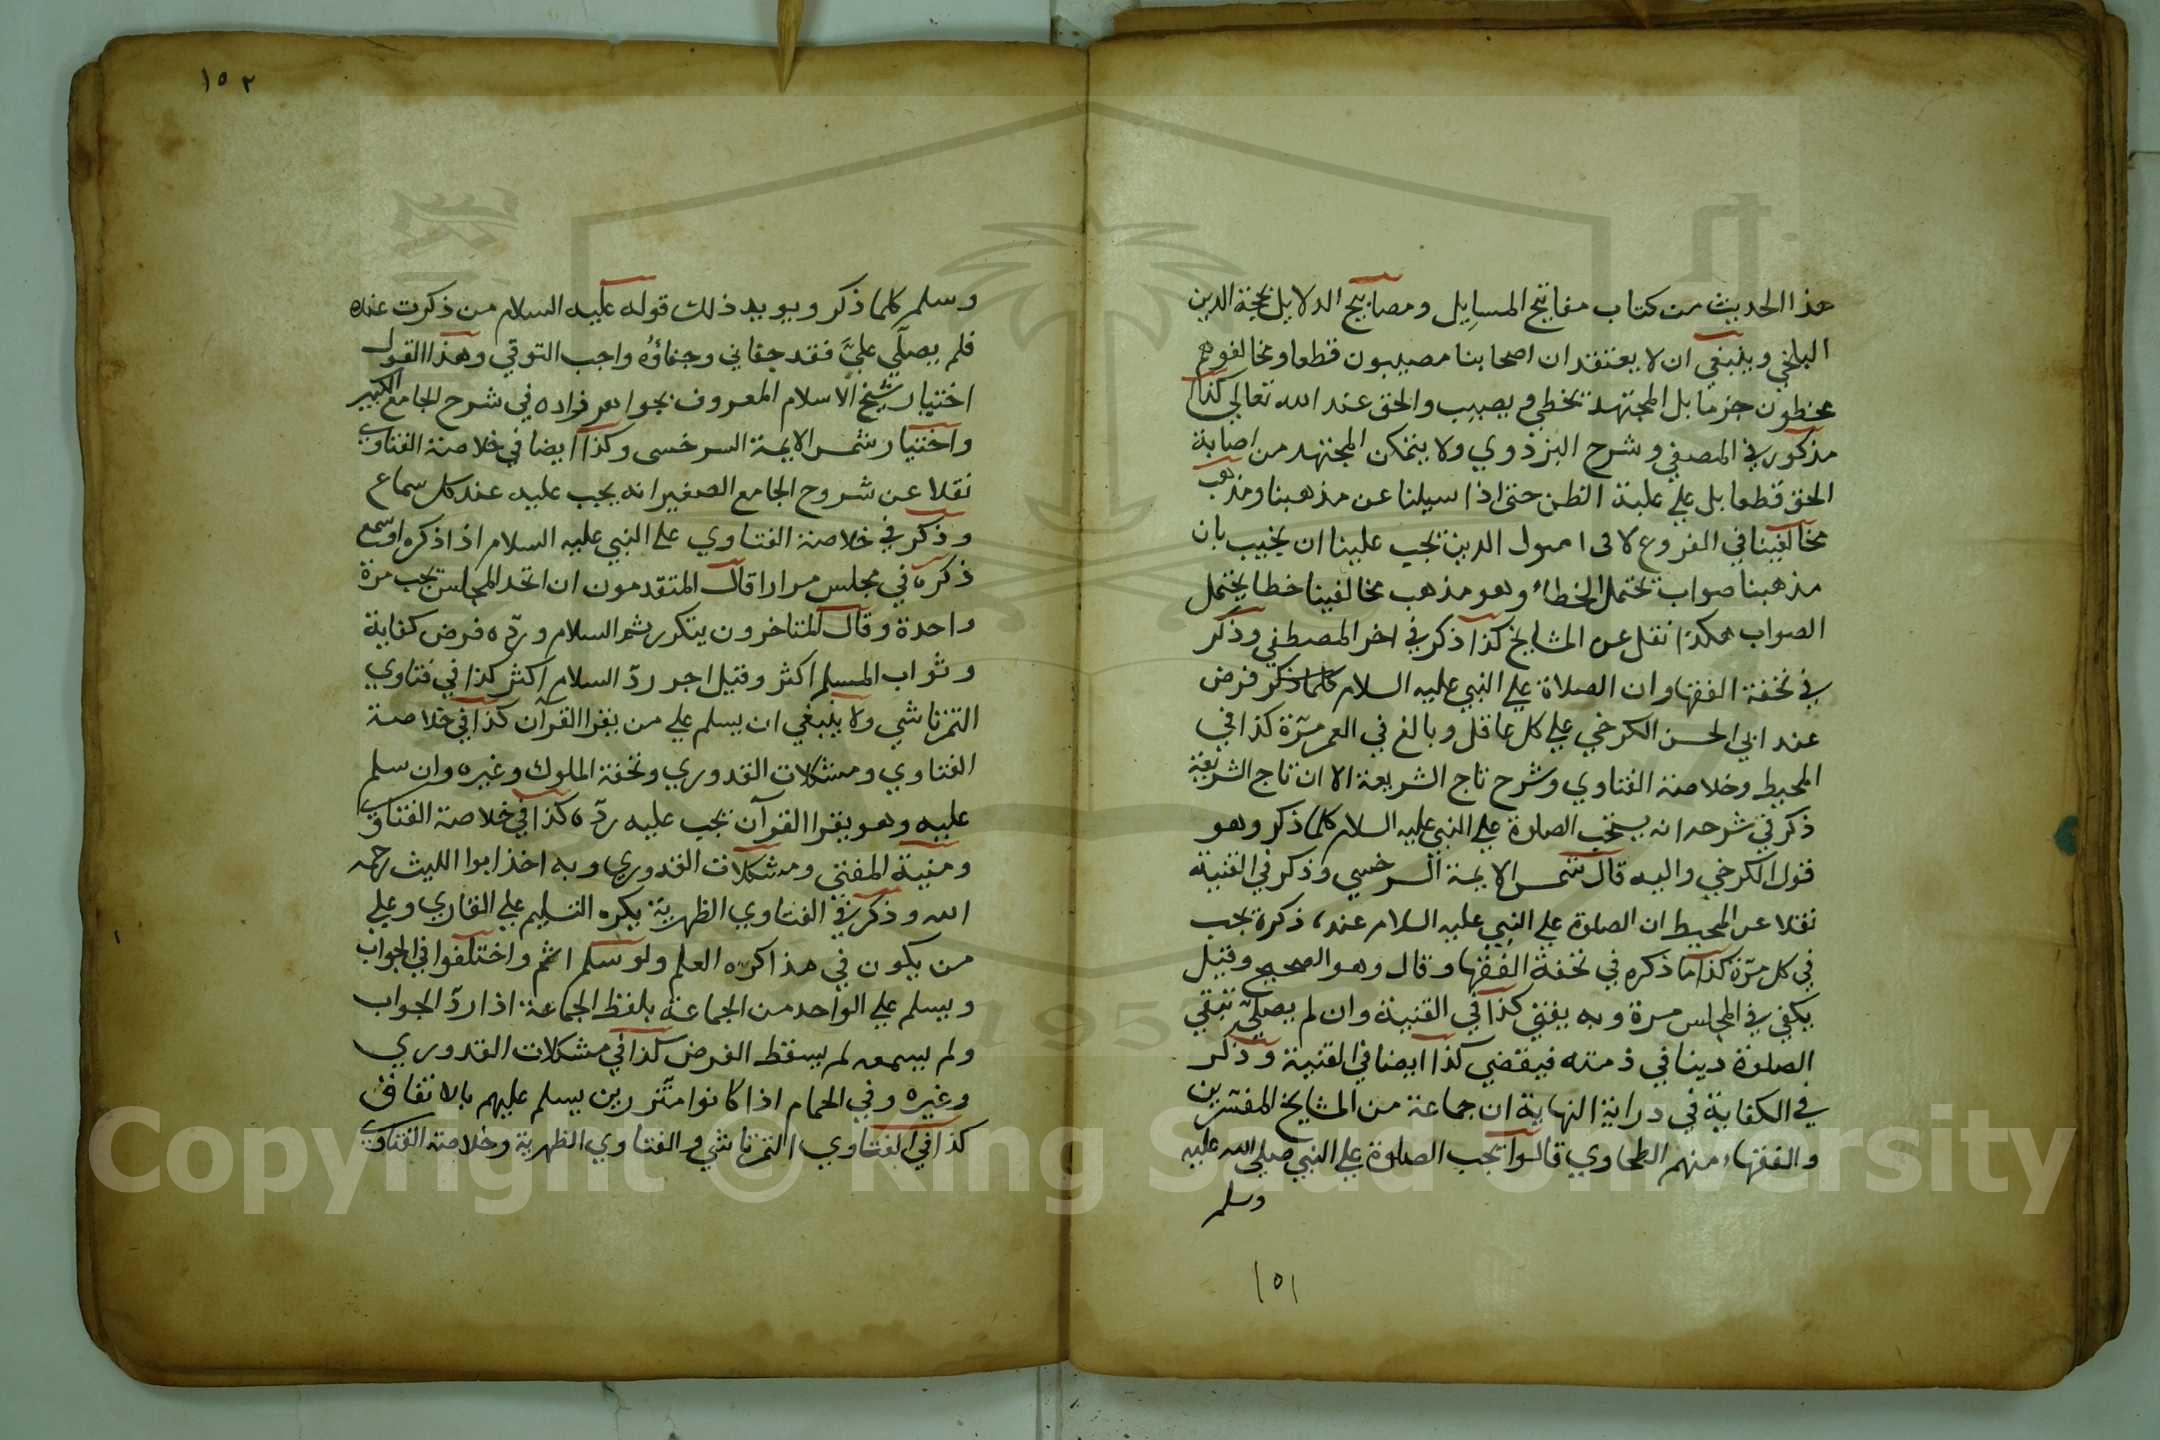 هذا الحديث من كتاب مفاتيح المسايل ومصابيح الدلايل لحجة الدين
البلخي وينبغي ان لا يعتقد ان اصحابنا مصيبون قطعا ومخالفوهم
مخطون جزما بل المجتهد يخطي ويصيب والحق عند الله تعالى كذا
مذكور في المصفي وشرح البزدوي ولا يتمكن المجتهد من اصابة
الحق قطعا بل علي غلبة الظن حتى اذا سيلنا عن مذهبنا ومذهب
مخالفينا في الفروع لا في اصول الدين يجب علينا ان نجيب بان
مذهبنا صواب يحتمل الخطاء وهو مذهب مخالفينا خطا يحتمل
الصواب هكذا نقل عن المشايخ كذا ذكر في اخر المصطفي وذكر
في تحفة الفقها وان الصلاة علي النبي عليه السلام كلما ذكر فرض
عند ابي الحسن الكرخي علي كل عاقل وبالغ في العمر مرّة كذا في
المحيط وخلاصة الفتاوي وشرح تاج الشريعة الا ان تاج الشريعة
ذكر في شرحه انه يستحب الصلوة علي النبي عليه السلام كلما ذكر وهو
قول الكرخي واليه قال شمس الايمة السرخسي وذكر في القنية
نقلا عن المحيط ان الصلوة علي النبي عليه السلام عند ذكره يجب
في كل مرّة كذا ما ذكره في تحفة الفقها وقال وهو الصحيح وقيل
يكفي في المجلس مرة وبه يفتي كذا في القنية وان لم يصلي تبقي
الصلوة دينا في ذمته فيقضي كذا ايضا في القنية وذكر
في الكفاية في دراية النهاية ان جماعة من المشايخ المفسرين
والفقهاء منهم الطحاوي قالوا يجب الصلوة علي النبي صلى الله عليه
وسلم
١٥١
١٥٢
وسلم كلما ذكر ويويد ذلك قوله عليه السلام من ذكرت عنده
فلم يصلّي عليّ فقد جفاني وجفاؤه واجب التوقي وهذا القول
اختيار شيخ الاسلام المعروف بجواهر زاده في شرح الجامع الكبير
واختيار شمس الايمة السرخسى وكذا ايضا في خلاصة الفتاوي
نقلا عن شروح الجامع الصغير انه يجب عليه عند كل سماع
وذكر في خلاصة الفتاوي علي النبي عليه السلام اذا ذكره او سمع
ذكره في مجلس مرارا قال المتقدمون ان اتحد المجلس يجب مرة
واحدة وقال المتاخرون يتكرر ثم السلام وردّه فرض كفاية
وثواب المسلم اكثر وقيل اجر ردّ السلام اكثر كذا في فتاوي
التمرتاشي ولا ينبغي ان يسلم علي من يقرا القرآن كذا في خلاصة
الفتاوي ومشكلات القدوري وتحفة الملوك وغيره وان سلم
عليه وهو يقرا القرآن يجب عليه ردّه كذا في خلاصة الفتاوي
ومنية المفتي ومشكلات القدوري وبه اخذ ابوا الليث رحمه
الله وذكر في الفتاوي الظهرية يكره التسليم علي القاري وعلي
من يكون في مذاكره العلم ولو سلم اثم واختلفوا في الجواب
ويسلم علي الواحد من الجماعة بلفظ الجماعة اذا ردّ الجواب
ولم يسمعه لم يسقط الفرض كذا في مشكلات القدوري
وغيره وفي الحمام اذا كانوا متّزرين يسلم عليهم بالاتفاق
كذا في الفتاوي التمرتاشي والفتاوي الظهرية وخلاصة الفتاوي
Copyright © King Saud University
1957